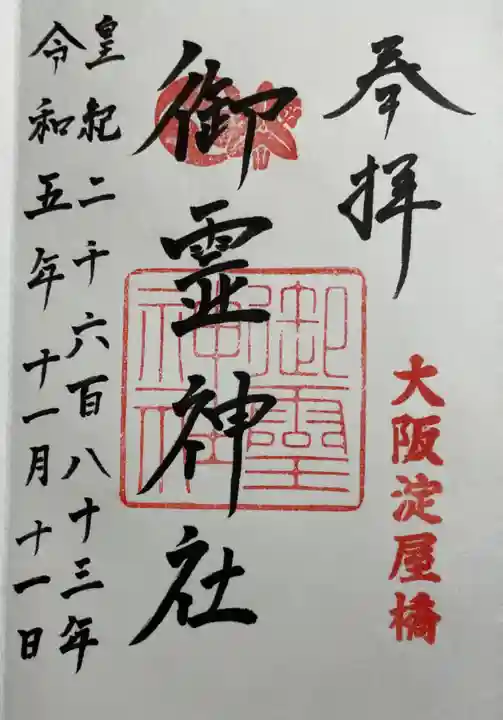 奉拝
大阪淀屋橋
御霊神社
御霊神社
皇紀二千六百八十三年
令和五年十一月十一日